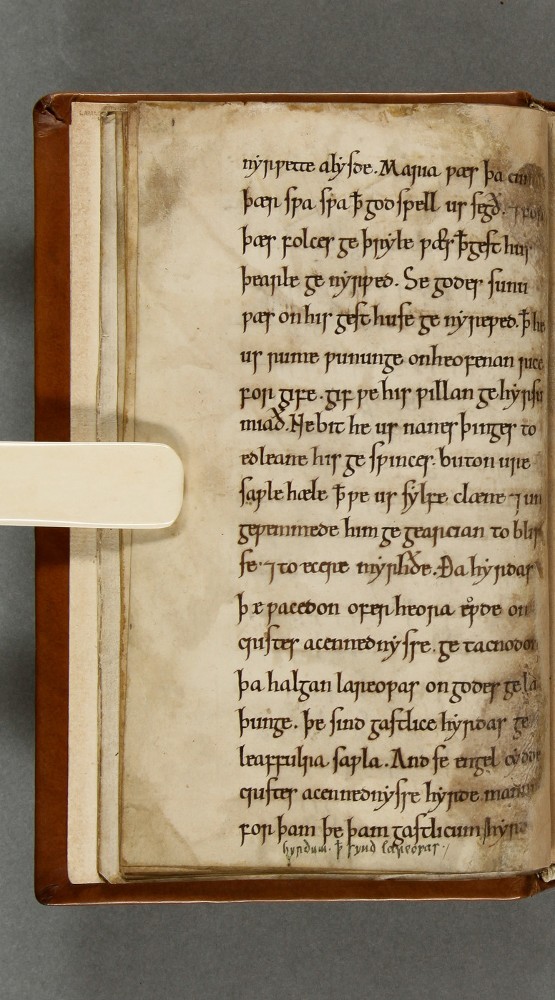 nyrƿette alysde. Maria ƿæs þa cu
þær sƿa sƿa ꝥ godspell us segð.
þæs folces geþryle ƿæs ꝥ gesthus
þearle genyrƿed. Se godes sunu
ƿæs on his gesthuse genyreƿed. ꝥ he
us rume ƿununge on heofenan rice
forgife. gif ƿe his ƿillan gehyrsu
miað. Ne bit he us nanes þinges to
edleane his gesƿinces. buton ure
saƿle hæle ꝥ ƿe us sylfe clæne ⁊ un
geƿemmede him gegearcian to blis
se. ⁊ to ecere myrhðe. Ða hyrdas
þe ƿacedon ofer heora eoƿde on
cristes acennednysse. getacnodon
þa halgan lareoƿas on godes gela
þunge. þe sind gastlice hyrdas ge
leaffulra saƿla. And se engel cydde
cristes acennednysse hyrde mannum
for þam þe þam gastlicum hyrd
hyrdum. ꝥ synd lareoƿas.